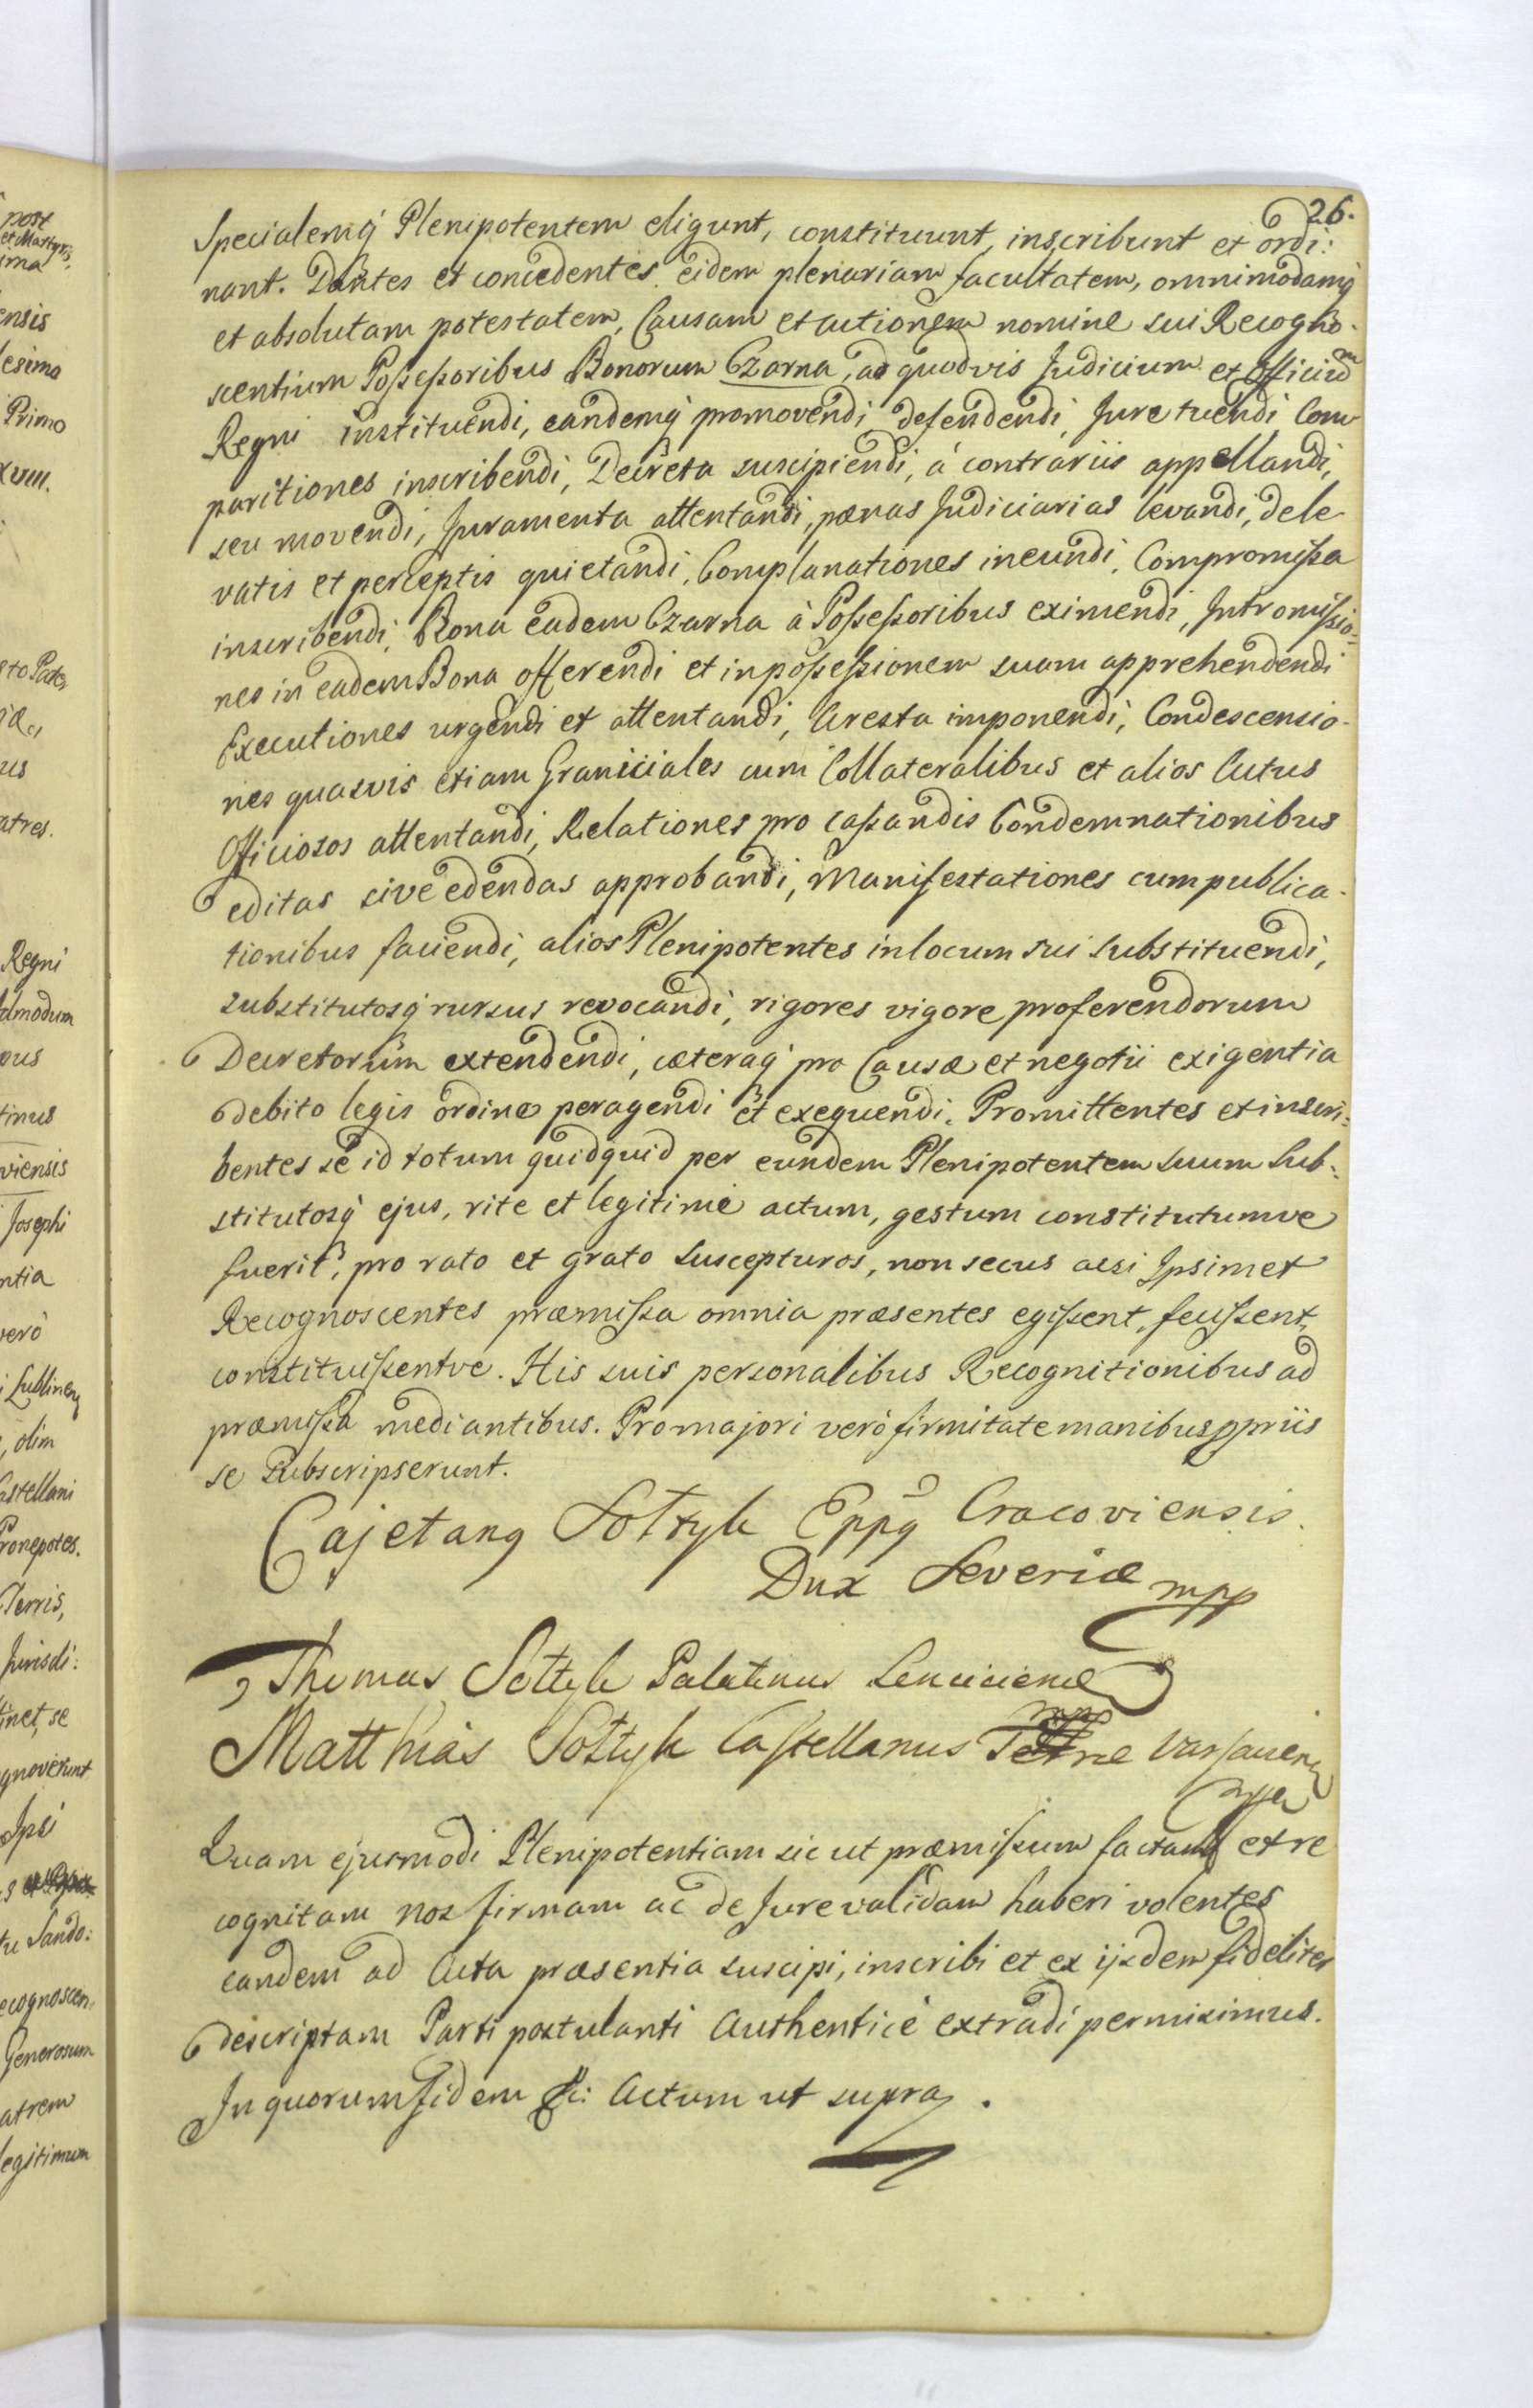 26.
Specialemq́ Plenipotentem eligunt, constituunt, inscribunt et ordi:
nant. Dantes et concedentes eidem plenariam facultatem, omnimodamq́
et absolutam potestatem, Causam et actionem nomine sui Recogno-
scentium Possessoribus Bonorum Czarna, ad quodvis Judicium et Officium
Regni instituendi, eandemq́ promovendi, defendendi, Jure tuendi, Com
paritiones inscribendi, Decreta suscipiendi, à contrariis appellandi,
seu movendi, Juramenta attentandi, pænas Judiciarias levandi, de le-
vatis et perceptis quietandi, Complanationes ineundi, Compromissa
inscribendi, Bona eadem Czarna à Possessoribus eximendi, Intromissio-
nes in eadem Bona offerendi et in possessionem suam apprehendendi
Executiones urgendi et attentandi, Aresta imponendi, Condescensio-
nes quasvis etiam Graniciales cum Collateralibus et alios Actus
Officiosos attentandi, Relationes pro cassandis Condemnationibus
editas sive edendas approbandi, Manifestationes cum publica-
tionibus faciendi, alios Plenipotentes in locum sui substituendi,
substitutosq́ rursus revocandi, rigores vigore proferendorum
Decretorum extendendi, cæteraq́ pro Causæ et negotii exigentia
debito legis ordine peragendi et exequendi. Promittentes et inscri-
bentes se id totum quidquid per eundem Plenipotentem suum Sub-
stitutosq́ ejus, rite et legitimè actum, gestum constitutumve
fuerit, pro rato et grato suscepturos, non secus acsi Ipsimet
Recognoscentes præmissa omnia præsentes egissent, fecissent,
constituissentve. His suis personalibus Recognitionibus ad
præmissa mediantibus. Pro majori verò firmitate manibus ppriis
se subscripserunt.
Cajetanq Sołtyk Eppq Cracoviensis.
Dux Severiæ mpp
Thomas Sołtyk Palatinus Lenciciensis
Matthias Sołtyk Castellanus Varsavien
mpp
Quam ejusmodi Plenipotentiam sic ut præmissum factam et re
cognitam nos firmam ac de Jure validam haberi volentes
eandem ad Acta præsentia suscipi, inscribi et ex ijsdem fideliter
descriptam Parti postulanti Authenticè extradi permisimus.
In quorum fidem &c: Actum ut supra.
post
et Martyris
ima
ensis
esima
Primo
XVIII.
us
atres.
Regni
dmodum
pus
tinus
viensis
Josephi
ntia
verò
olim
Castellani
Pronepotes.
Terris,
Jurisdi:
tinet, se
gnoverunt
Ipsi
tu Sando:
ecognoscen
Generosum
atrem
legitimum